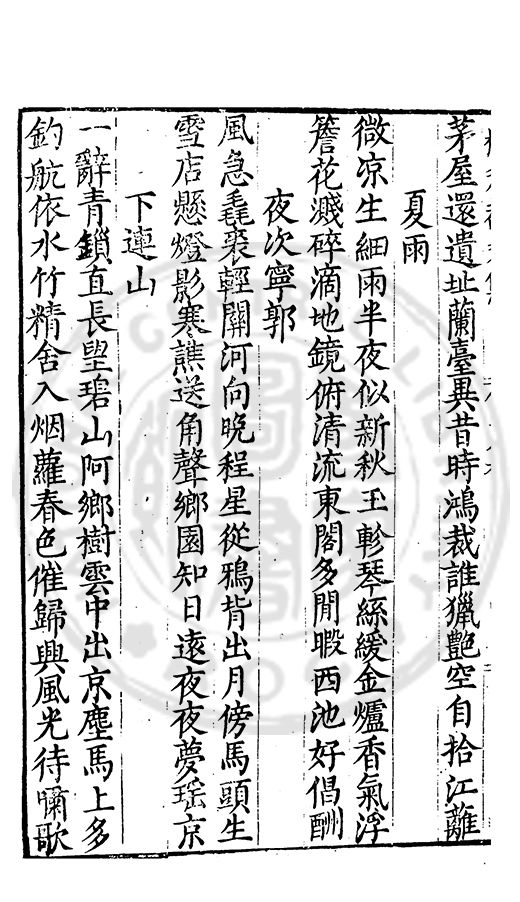 茅屋還遺址蘭臺異昔時鴻裁誰獵艷空自拾江蘺
夏雨
微凉生細雨半夜似新秋玉軫琴絲緩金爐香氣浮
簷花濺碎滴地鏡俯清流東閣多閒暇西池好倡酬
夜次寧郭
風急毳裘輕關河向晚程星從鴉背出月傍馬頭生
雪店懸燈影寒譙送角聲鄉園知日遠夜夜夢瑶京
下連山
一辭青鎖直長望碧山阿鄉樹雲中出京塵馬上多
釣航依水竹精舍入烟蘿春色催歸興風光待嘯歌